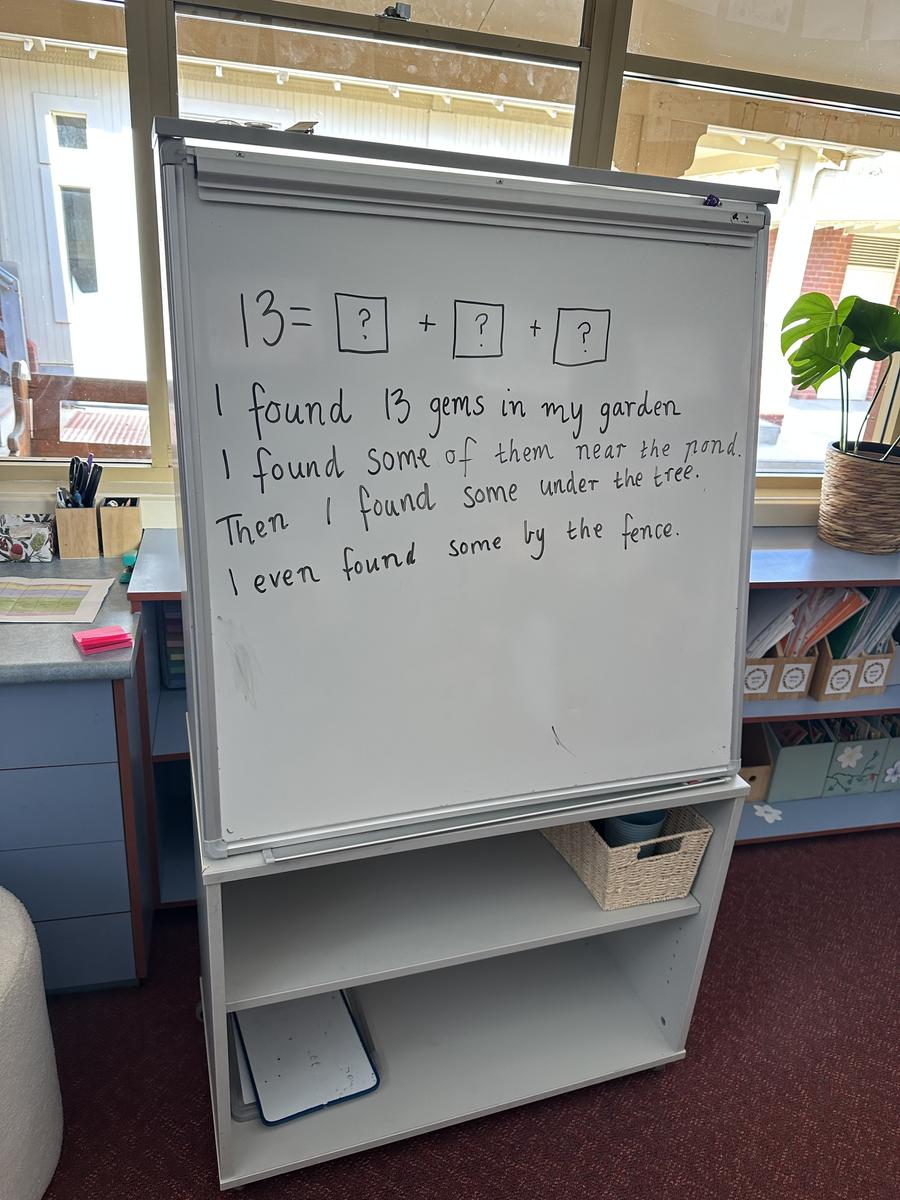 13= ? + ? + ?
I found 13 gems in my garden
I found some of them near the pond.
Then I found some under the tree.
I even found some by the fence.